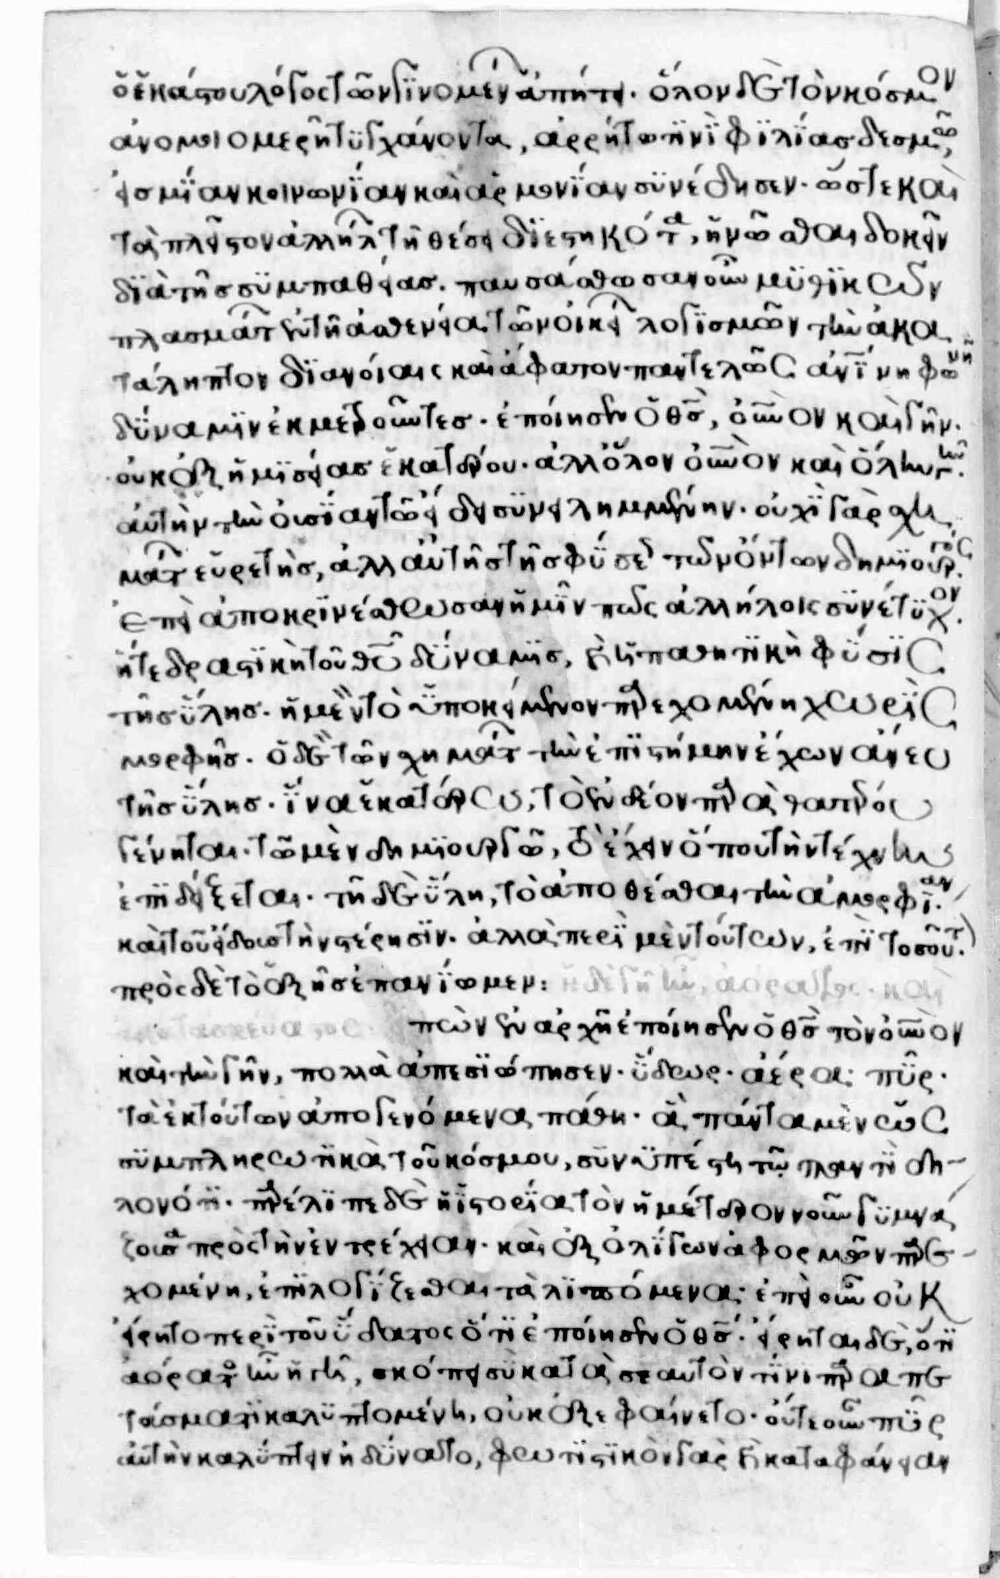 ὁ ἑκάστου λόγος τῶν γινομένων ἀπῄτει. ὅλον δὲ τὸν κόσμον
ἀνομοιομερῆ τυγχάνοντα, ἀρρήτω τινὶ φιλίας δεσμῶ,
εἰς μίαν κοινωνίαν καὶ ἁρμονίαν συνέδησεν. ὥστε καὶ
τὰ πλεῖστον ἀλλήλων τῆ θέσει διεστηκότα, ἡνῶσθαι δοκεῖν
διὰ τῆς συμπαθείας. παυσάσθωσαν οὖν μυθικῶν
πλασμάτων ἐν τῆ ἀσθενεία τῶν οἰκείων λογισμῶν τὴν ἀκα
τάληπτον διανοίαις καὶ ἄφατον παντελῶς ἀνθρωπίνη φωνῆ
δύναμιν ἐκμετροῦντες. ἐποίησεν ὁ θς, οὐνον καὶ γῆν.
οὐκ ἐξ ἡμισείας ἑκάτερον. ἀλλ ὅλον οὐνον καὶ ὅλην γῆν.
αὐτὴν τὴν οὐσίαν τῶ εἴδει συνειλημμένην. οὐχὶ γὰρ σχη
μάτων εὑρετὴς, ἀλλ αὐτῆς τῆς φύσεως τῶν ὄντων δημιουργός.
Ἐπεὶ ἀποκρινέσθωσαν ἡμῖν πῶς ἀλλήλοις συνέτυχον.
ἥτε δραστικὴ τοῦ θυ δύναμις, καὶ ἡ παθητικὴ φύσις
τῆς ὕλης. ἡ μὲν τὸ ὑποκείμενον παρεχομένη χωρὶς
μορφῆς. ὁ δὲ τῶν σχημάτων τὴν ἐπιστήμην ἔχων ἄνευ
τῆς ὕλης. ἵνα ἑκατέρω, τὸ ἐνδέον παρὰ θατέρου
γένηται. τῶ μὲν δημιουργῶ, τὸ ἔχειν ὅπου τὴν τέχνην
ἐπιδείξεται. τῆ δὲ ὕλη, τὸ ἀποθέσθαι τὴν ἀμορφίαν.
καὶ τοῦ εἴδους τὴν στέρησιν. ἀλλὰ περὶ μὲν τούτων, ἐπὶ τοσοῦτον.
πρὸς δὲ τὸ ἐξ ἧς ἐπανίωμεν: ἡ δὲ γῆ ἦν, ἀόρατος. καὶ
ἀκατασκεύαστος. εἰπὼν ἐν ἀρχῆ ἐποίησεν ὁ θς τὸν οὐνον
καὶ τὴν γῆν, πολλὰ ἀπεσιώπησεν. ὕδωρ. ἀέρα. πῦρ.
τὰ ἐκ τούτων ἀπογενόμενα πάθη. ἃ πάντα μὲν ὡς
συμπληρωτικὰ τοῦ κόσμου, συνυπέστη τῶ παντὶ δη
λονότι. παρέλιπε δὲ ἡ ἱστορία τὸν ἡμέτερον νοῦν γυμνά
ζουσα πρὸς τὴν ἐντρέχειαν. καὶ ἐξ ὀλίγων ἀφορμῶν παρε
χομένη, ἐπιλογίζεσθαι τὰ λιπόμενα. ἐπεὶ οὖν οὐκ
εἴρητο περὶ τοῦ ὕδατος ὅτι ἐποίησεν ὁ θς. εἴρηται δὲ, ὅτι
ἀόρατος ἦν ἡ γῆ, σκόπει σὺ κατὰ σεαυτὸν τίνι παραπε
τάσματι καλυπτομένη, οὐκ ἐξεφαίνετο. οὔτε οὖν πῦρ
αὐτὴν καλύπτειν ἠδύνατο, φωτιστικὸν γὰρ καὶ καταφάνειαν